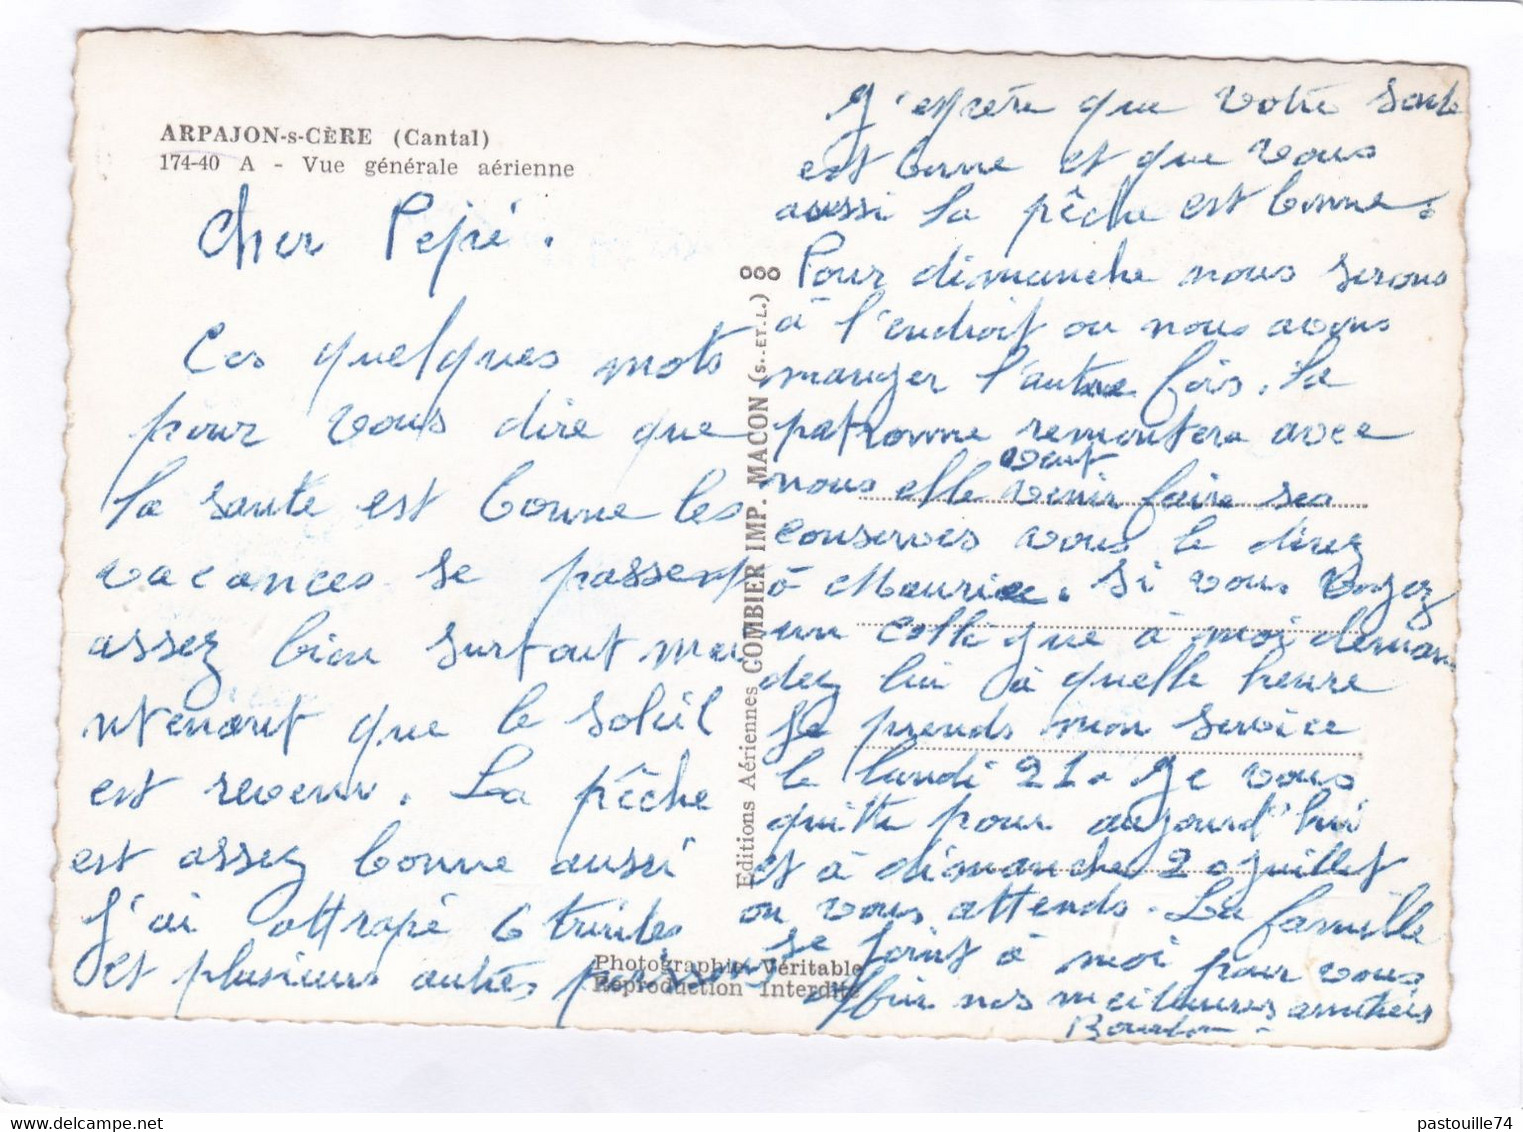 ARPAJON-s-CÈRE (Cantal)
174-40 A - Vue générale aérienne
Cher Pepé.
Ces quelques mots
pour vous dire que
la santé est bonne les
vacances se passent
assez bien surtout mai
ntenant que le soleil
est revenu. La pêche
est assez bonne aussi
j'ai attrapé 6 truites
et plusieurs autres poissons
J'espère que votre santé
est bonne et que vous
aussi la pêche est bonne.
Pour dimanche nous serons
à l'endroit ou nous avons
manger l'autre fois. la
patronne remontera avec
nous elle veut venir faire ses
conserves vous le direz
à Maurice. Si vous voyez
un collègue à moi deman
dez lui à quelle heure
je prends mon service
le lundi 21. Je vous
quitte pour aujourd'hui
et à dimanche 20 juillet
ou vous attends. La famille
se joint à moi pour vous
offrir nos meilleures amitiés
Editions Aériennes COMBIER IMP. MACON (S.-ET-L.)
Photographie Véritable
Reproduction Interdite
pastouille74